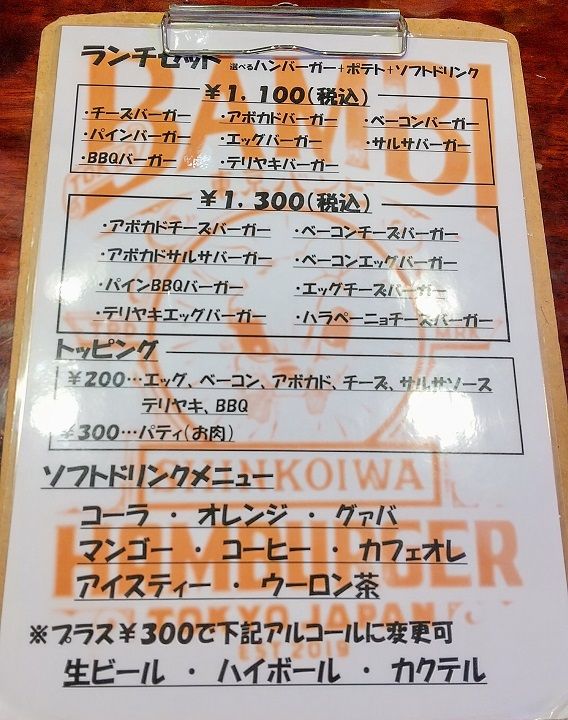 ランチセット 選べるハンバーガー+ポテト+ソフトドリンク
¥1,100(税込)
・チーズバーガー ・アボカドバーガー ・ベーコンバーガー
・パインバーガー ・エッグバーガー ・サルサバーガー
・BBQバーガー ・テリヤキバーガー
¥1,300(税込)
・アボカドチーズバーガー ・ベーコンチーズバーガー
・アボカドサルサバーガー ・ベーコンエッグバーガー
・パインBBQバーガー ・エッグチーズバーガー
・テリヤキエッグバーガー ・ハラペーニョチーズバーガー
トッピング
¥200…エッグ、ベーコン、アボカド、チーズ、サルサソース
テリヤキ、BBQ
¥300…パティ(お肉)
ソフトドリンクメニュー
コーラ ・ オレンジ ・ グァバ
マンゴー ・ コーヒー ・ カフェオレ
アイスティー ・ ウーロン茶
※プラス¥300で下記アルコールに変更可
生ビール ・ ハイボール ・ カクテル
BAMBI
SHINKOIWA
HAMBURGER
TOKYO JAPAN
EST 2019